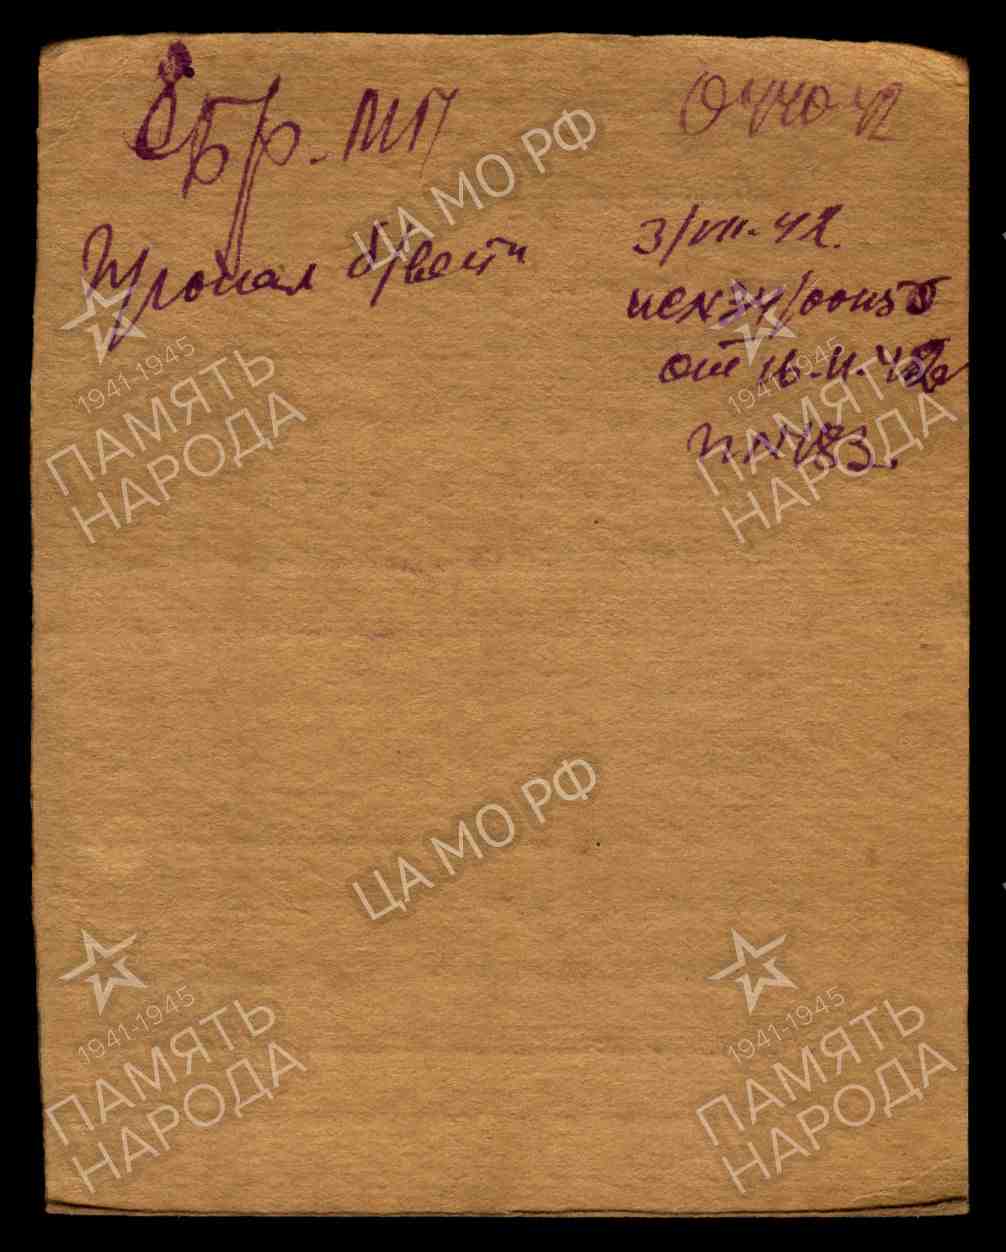 8 Бр. МП
Пропал б/вести
3/VII-42.
исх 34/
от 16-11-42
п N 483.
ЦА МО РФ
1941-1945
ПАМЯТЬ
НАРОДА
1941-1945
ПАМЯТЬ
НАРОДА
ЦА МО РФ
1941-1945
ПАМЯТЬ
НАРОДА
1941-1945
ПАМЯТЬ
НАРОДА